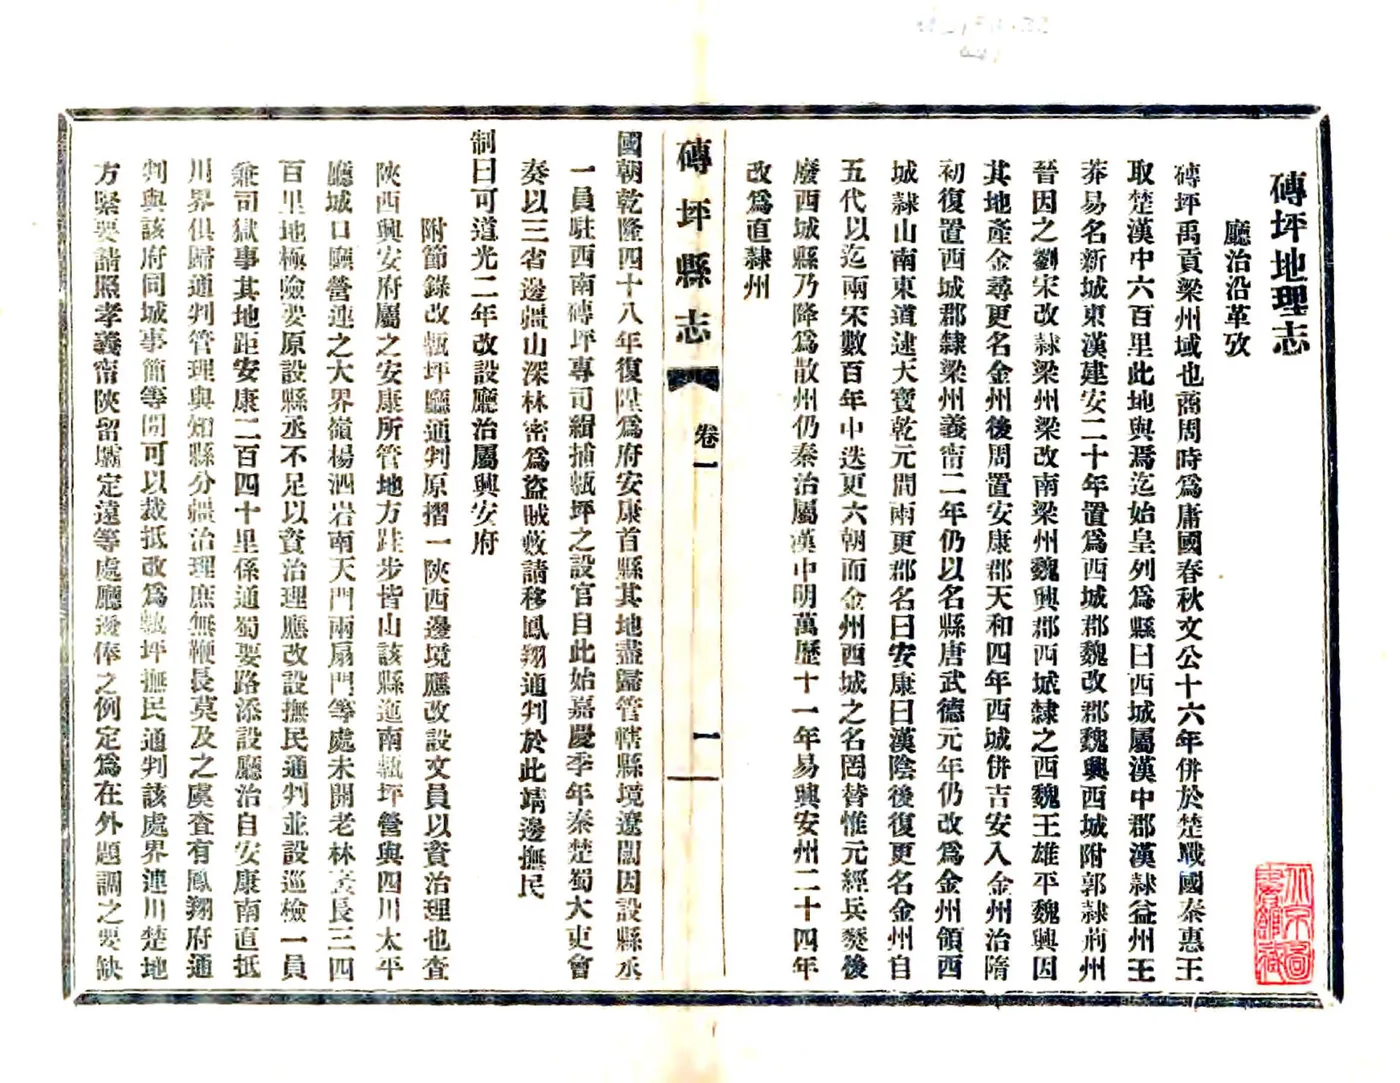 磚坪地理志
廳治沿革攷
磚坪禹貢梁州域也商周時爲庸國春秋文公十六年併於楚戰國秦惠王
取楚漢中六百里此地與焉迄始皇列爲縣曰西城屬漢中郡漢隸益州王
莽易名新城東漢建安二十年置爲西城郡魏改郡魏興西城附郭隸荊州
晉因之劉宋改隸梁州梁改南梁州魏興郡西城隸之西魏王雄平魏興因
其地產金尋更名金州後周置安康郡天和四年西城併吉安入金州治隋
初復置西城郡隸梁州義甯二年仍以名縣唐武德元年仍改爲金州領西
城隸山南東道逮天寶乾元間兩更郡名曰安康曰漢陰後復更名金州自
五代以迄兩宋數百年中迭更六朝而金州西城之名罔替惟元經兵燹後
廢西城縣乃降爲散州仍秦治屬漢中明萬歷十一年易興安州二十四年
改爲直隸州
磚坪縣志
卷一
一
國朝乾隆四十八年復陞爲府安康首縣其地盡歸管轄縣境遼闊因設縣丞
一員駐西南磚坪專司緝捕甎坪之設官自此始嘉慶季年秦楚蜀大吏會
奏以三省邊疆山深林密爲盜賊藪請移鳳翔通判於此靖邊撫民
制曰可道光二年改設廳治屬興安府
附節錄改甎坪廳通判原摺一陝西邊境應改設文員以資治理也查
陝西興安府屬之安康所管地方跬步皆山該縣迤南甎坪營與四川太平
廳城口廳營連之大界嶺楊泗岩南天門兩扇門等處未開老林袤長三四
百里地極險要原設縣丞不足以資治理應改設撫民通判並設巡檢一員
兼司獄事其地距安康二百四十里係通蜀要路添設廳治自安康南直抵
川界俱歸通判管理與知縣分疆治理庶無鞭長莫及之虞查有鳳翔府通
判與該府同城事簡等閒可以裁抵改爲甎坪撫民通判該處界連川楚地
方緊要請照孝義甯陝留壩定遠等處廳㳟俸之例定爲在外題調之要缺